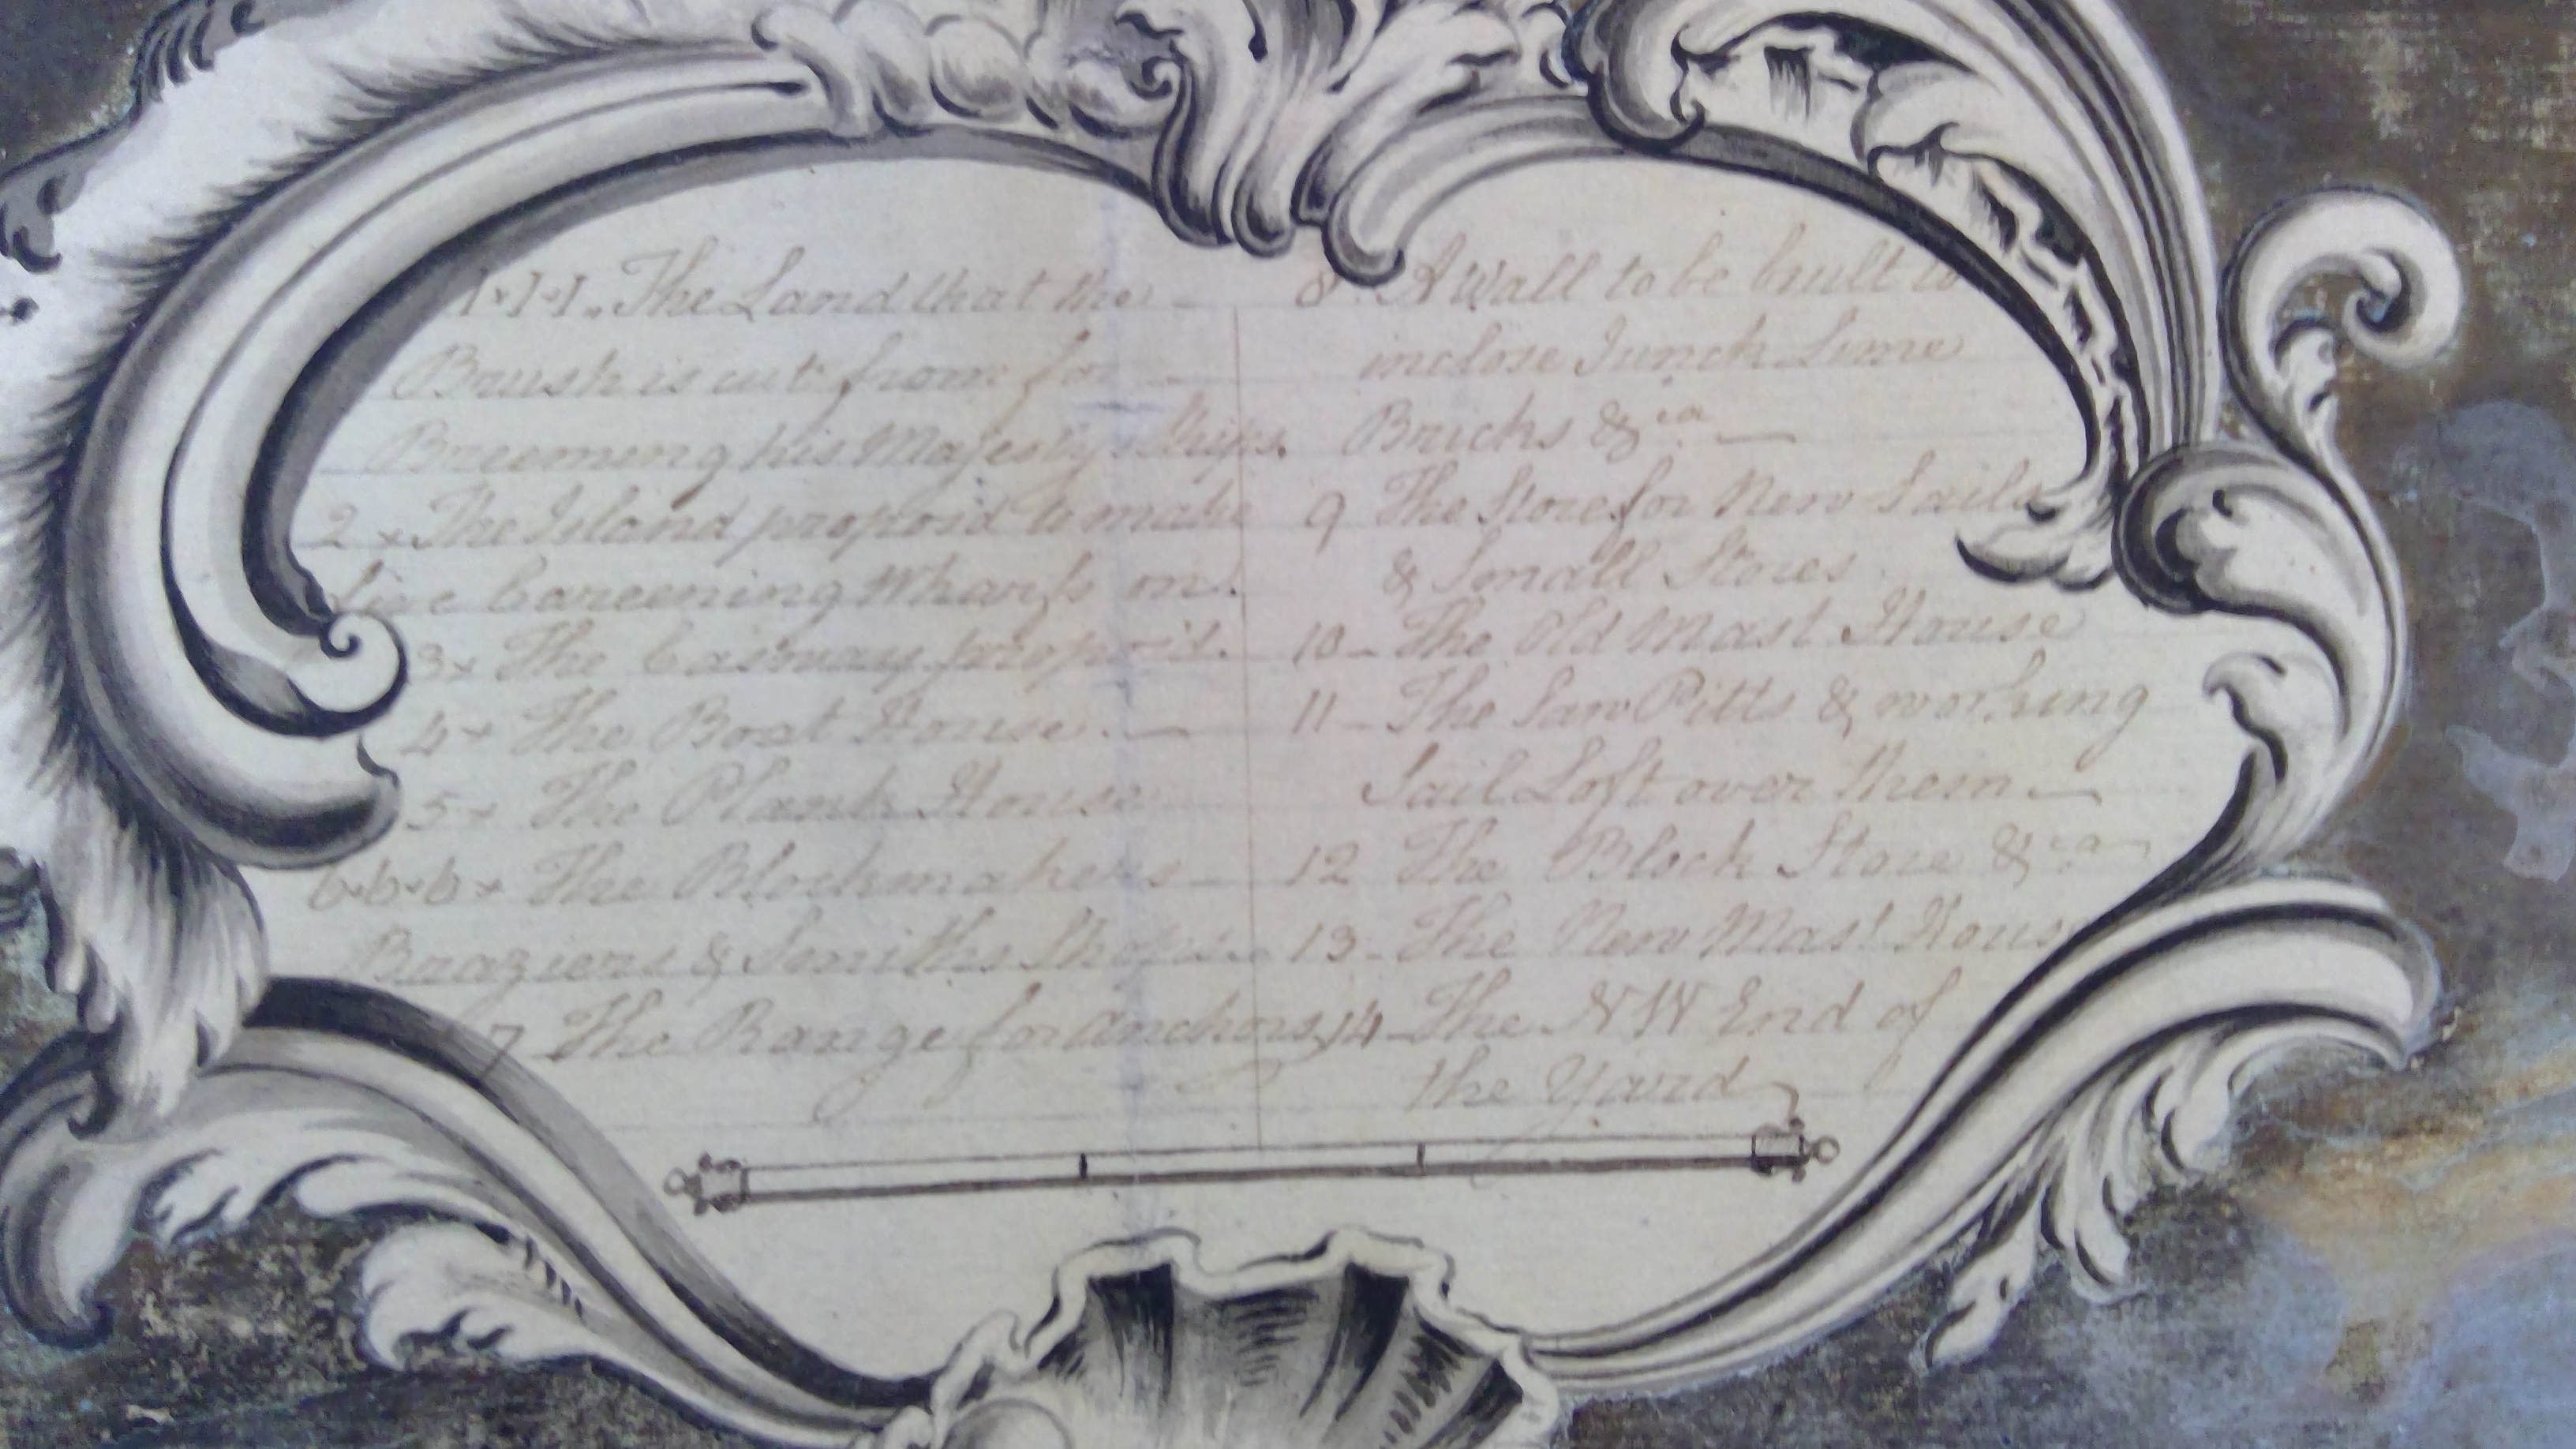 1×1×1. The Land that the
Brush is cut from for
Breeming his Majesty's Ships.
2 × The Island propos'd to make
five Careening Wharfs on.
3× The Casway propos'd.
4× The Boat House.
5× The Plank House
6×6×6× The Blockmakers
Braziers & Smiths Shops
7 The Range for Anchors
8 A Wall to be built to
inclose Junck Lime
Bricks &ca
9 The Store for New Sails
& Small Stores
10 - The Old Mast House
11 - The Saw Pitts & working
Sail Loft over them
12 The Block Store &ca
13 - The New Mast House
14 - The NW End of
the Yard